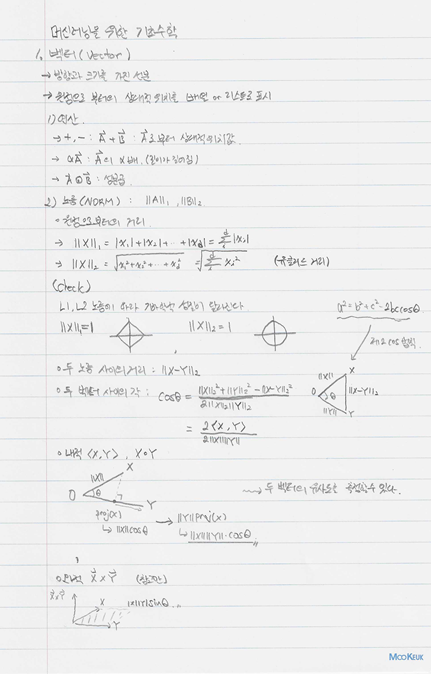 머신러닝을 위한 기초수학
1. 벡터 (Vector)
→ 방향과 크기를 가진 성분
→ 원점으로 부터의 상대적 위치를 배열 or 리스트로 표시
1) 연산
→ +, - : A⃗ + B⃗ : A⃗로부터 상대적위치값
→ αA⃗ : A⃗의 α배. (길이가 길어짐)
→ A⃗ ⊙ B⃗ : 성분곱
2) 노름 (NORM) : ||A||₁, ||B||₂
◦ 원점으로부터의 거리
→ ||X||₁ = |x₁| + |x₂| + ·· + |x_d| = Σ|x_i|
→ ||X||₂ = √(x₁² + x₂² + ·· + x_d²) = √(Σ x_i²) (유클리드 거리)
(Check)
L1, L2 노름에 따라 기하학적 성질이 달라진다
||X||₁ = 1 ||X||₂ = 1
a² = b² + c² - 2bc cosθ
제2 cos 법칙
||X|| X
O θ ||X-Y||₂
||Y|| Y
◦ 두 노름 사이의거리 : ||X-Y||₂
◦ 두 벡터 사이의 각 : cosθ = (||X||₂² + ||Y||₂² - ||X-Y||₂²) / 2||X||₂||Y||₂
= 2<X, Y> / 2||X||||Y||
◦ 내적 <X, Y>, X∘Y
||X|| X
O θ Y
proj(x) → ||Y||proj(x)
↳ ||X||cosθ ↳ ||X||||Y||·cosθ
두 벡터의 유사도를 측정할수 있다.
X⃗ × Y⃗ (참고만)
X⃗×Y⃗ X |X||Y|sinθ
Y
MOOKEUK